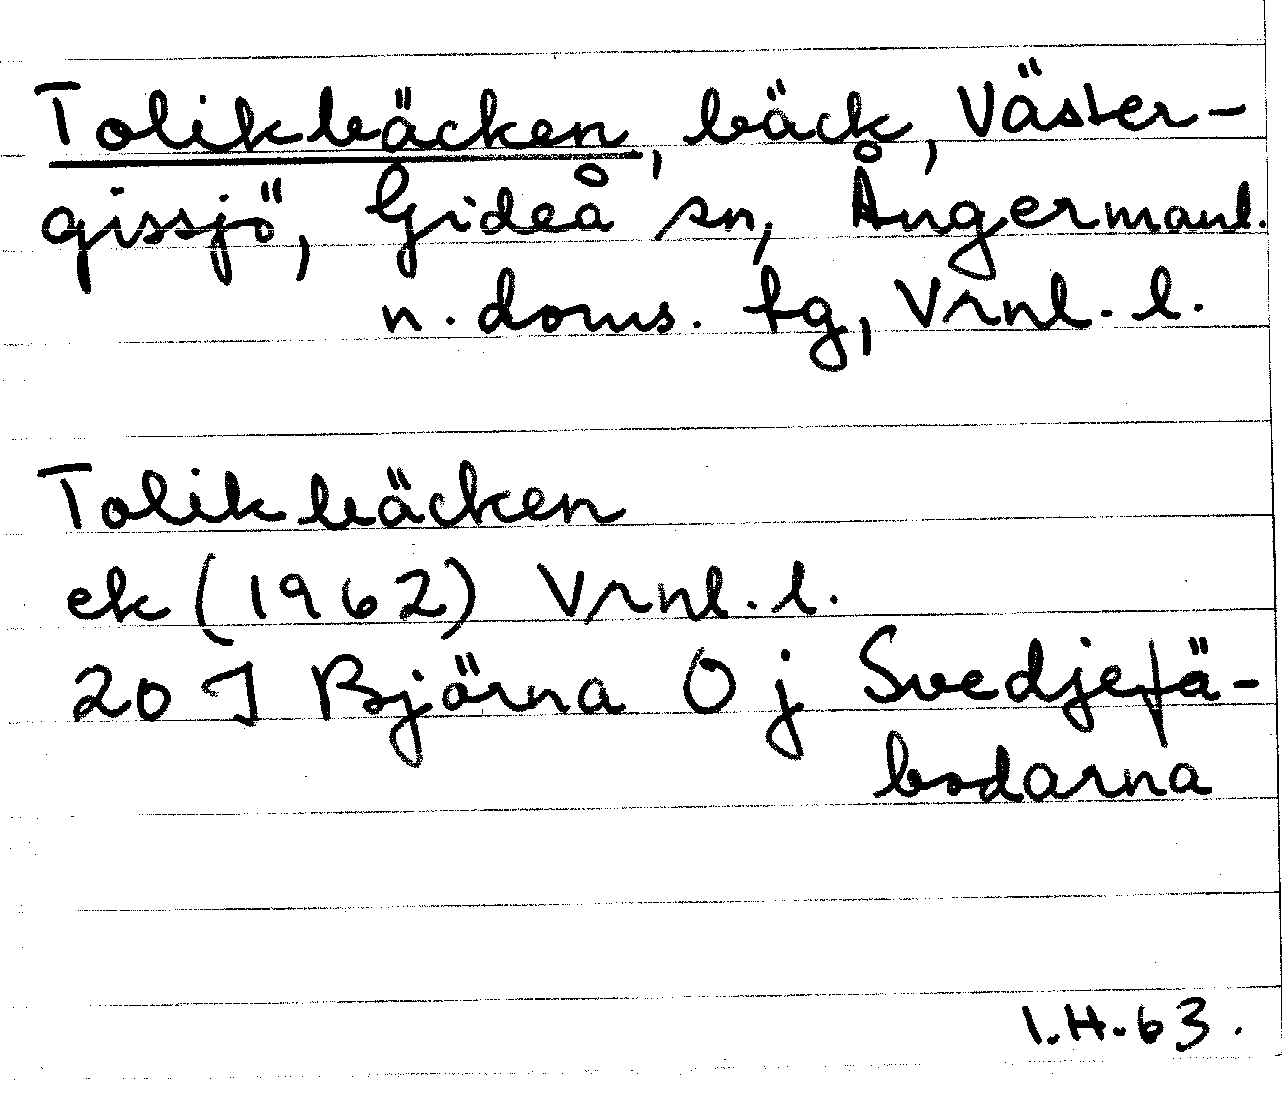 Tolikbäcken, bäck, Väster-
gissjö, Gideå sn, Ångermanl.
n. doms. tg, Vrnl. l.
Tolikbäcken
ek (1962) Vrnl. l.
20 J Björna O j Svedjefä-
bodarna
I.H. 63.